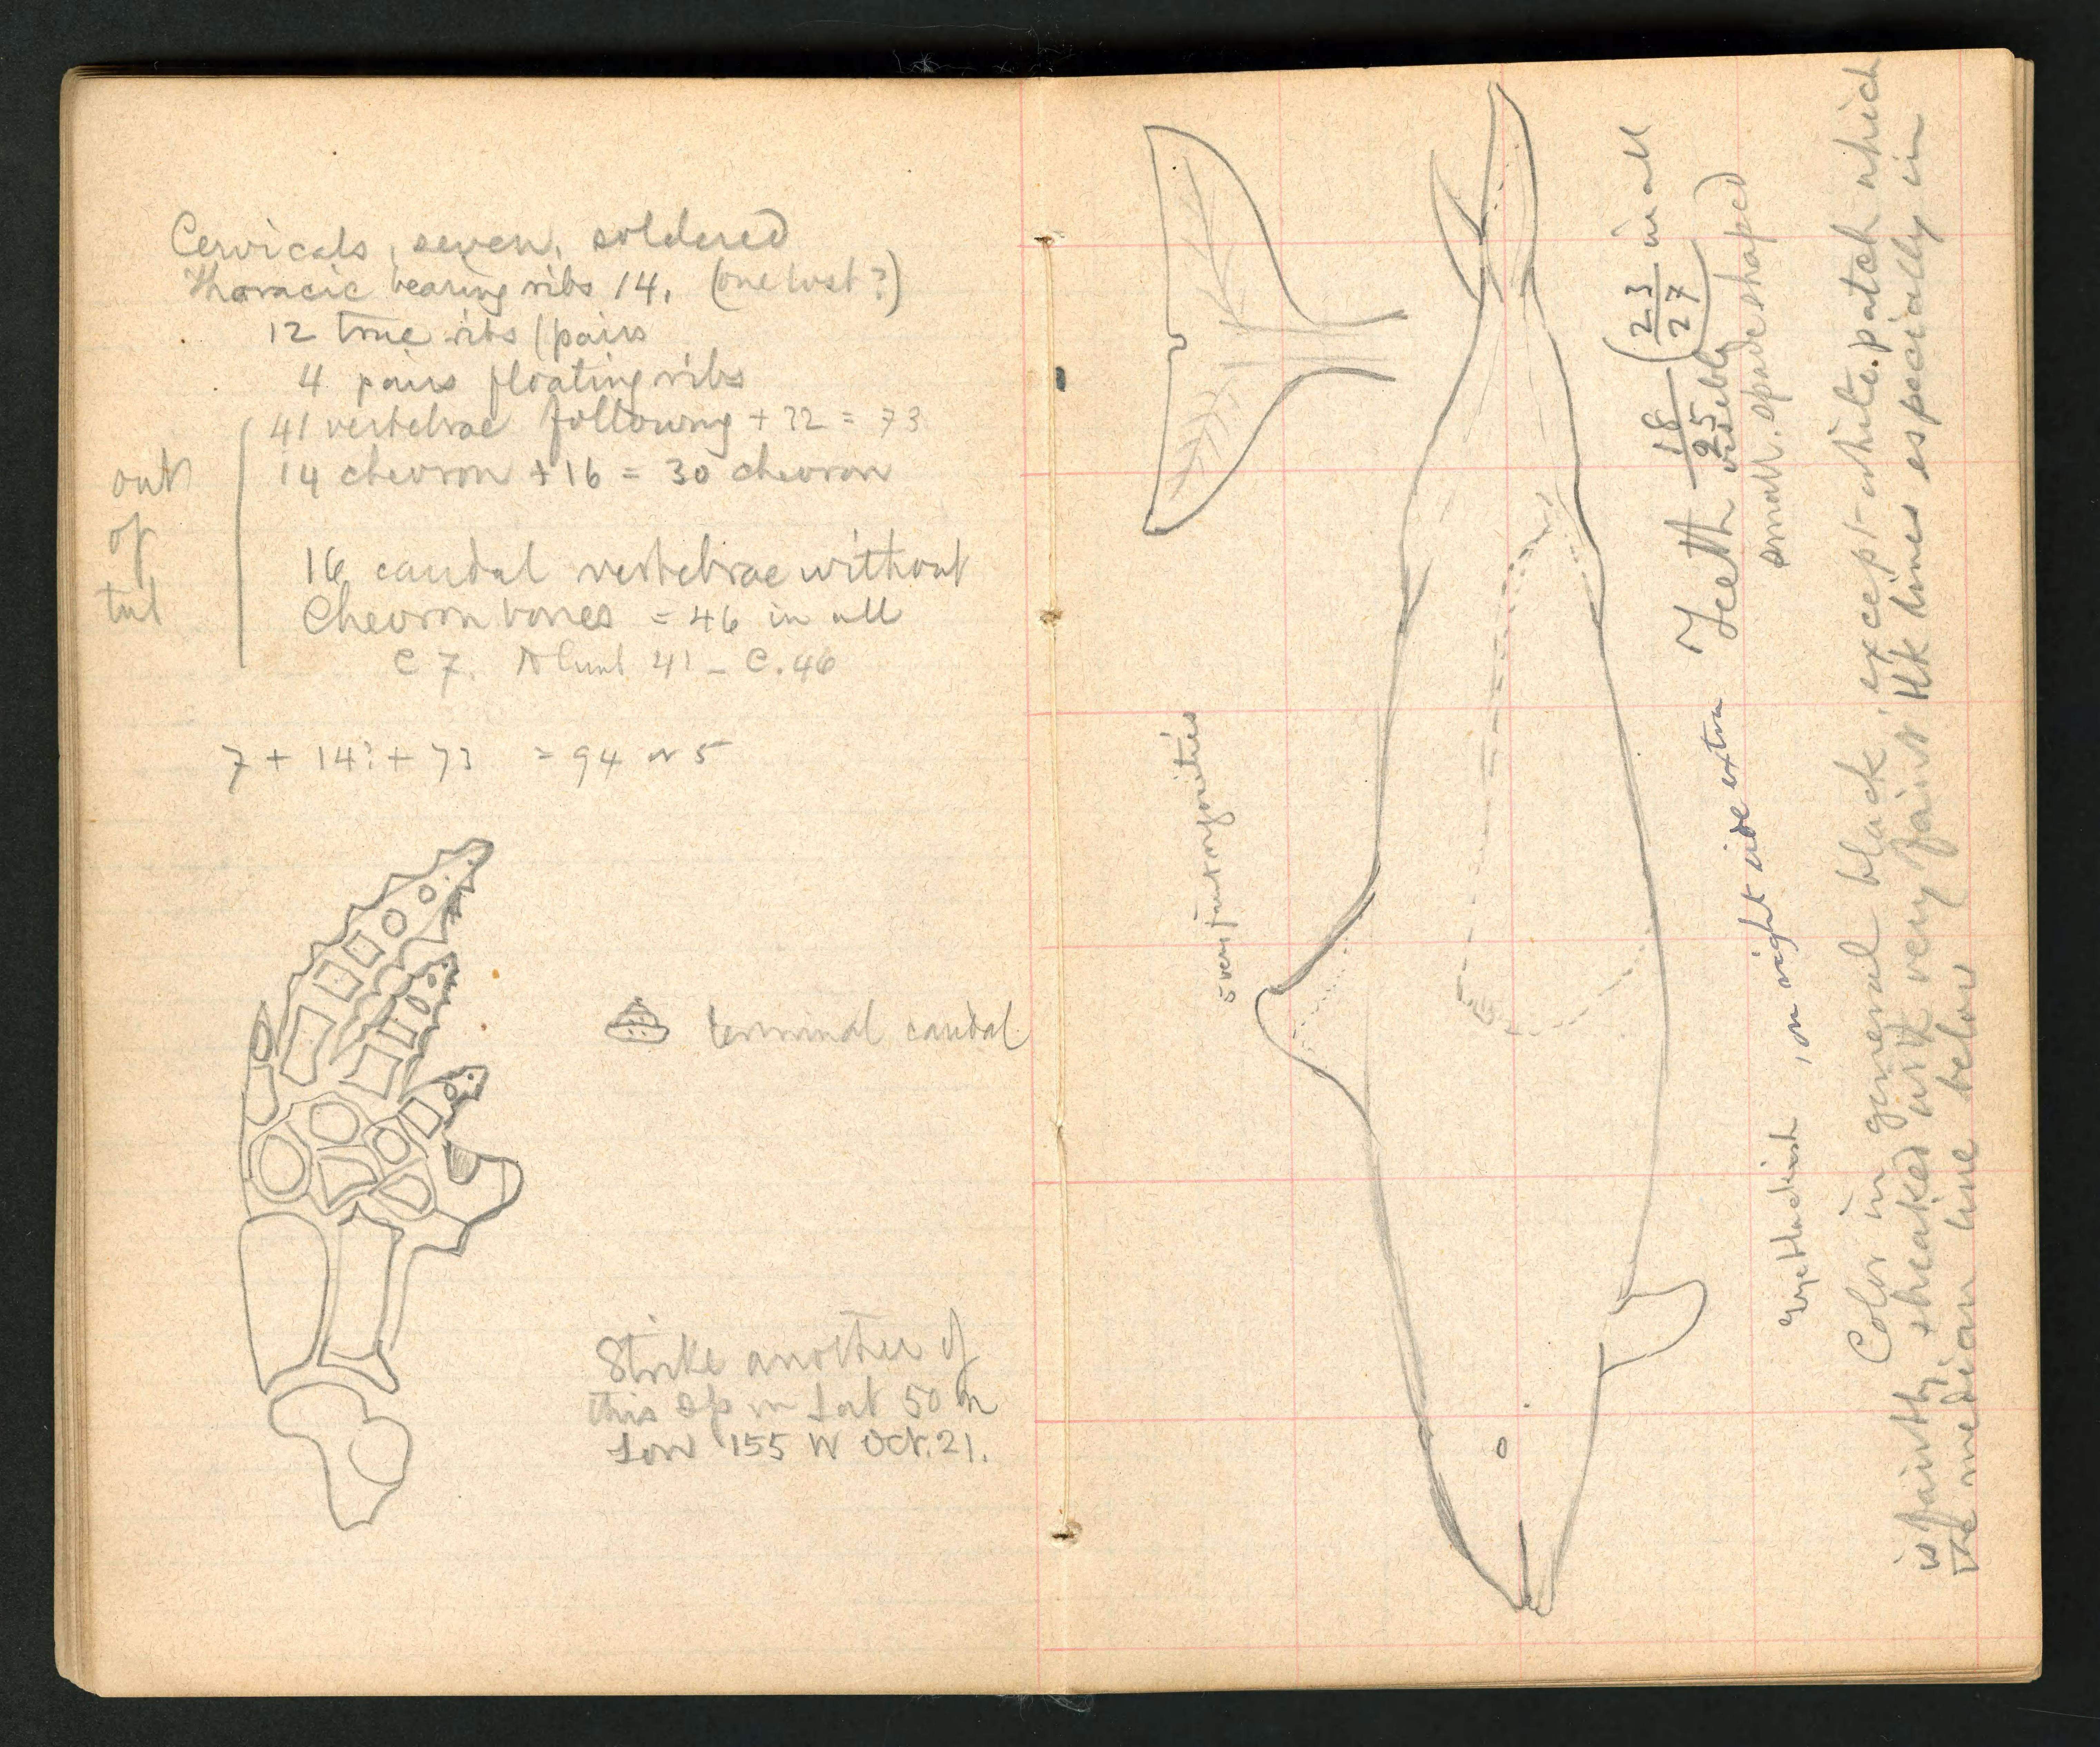 Cervicals, seven, soldered
Thoracic bearing ribs 14. (one lost?)
12 true ribs (pairs
4 pairs floating ribs
41 vertebrae following + 32 = 73
14 chevron + 16 = 30 chevron
out
of
16 caudal vertebrae without
Chevron bones = 46 in all
C 7. 41 - C. 46
7 + 14? + 73 = 94 or 5
terminal caudal
Strike another of
this sp in Lat 50 N
Lon 155 W Oct. 21.
5 very faint
Teeth 18/25 visibly (23/27) in all
small. spade shaped
1 on right side extra
Eye blackish
Color in general black except white patch which
is faintly streaked with very faint blk lines especially in
the median line below